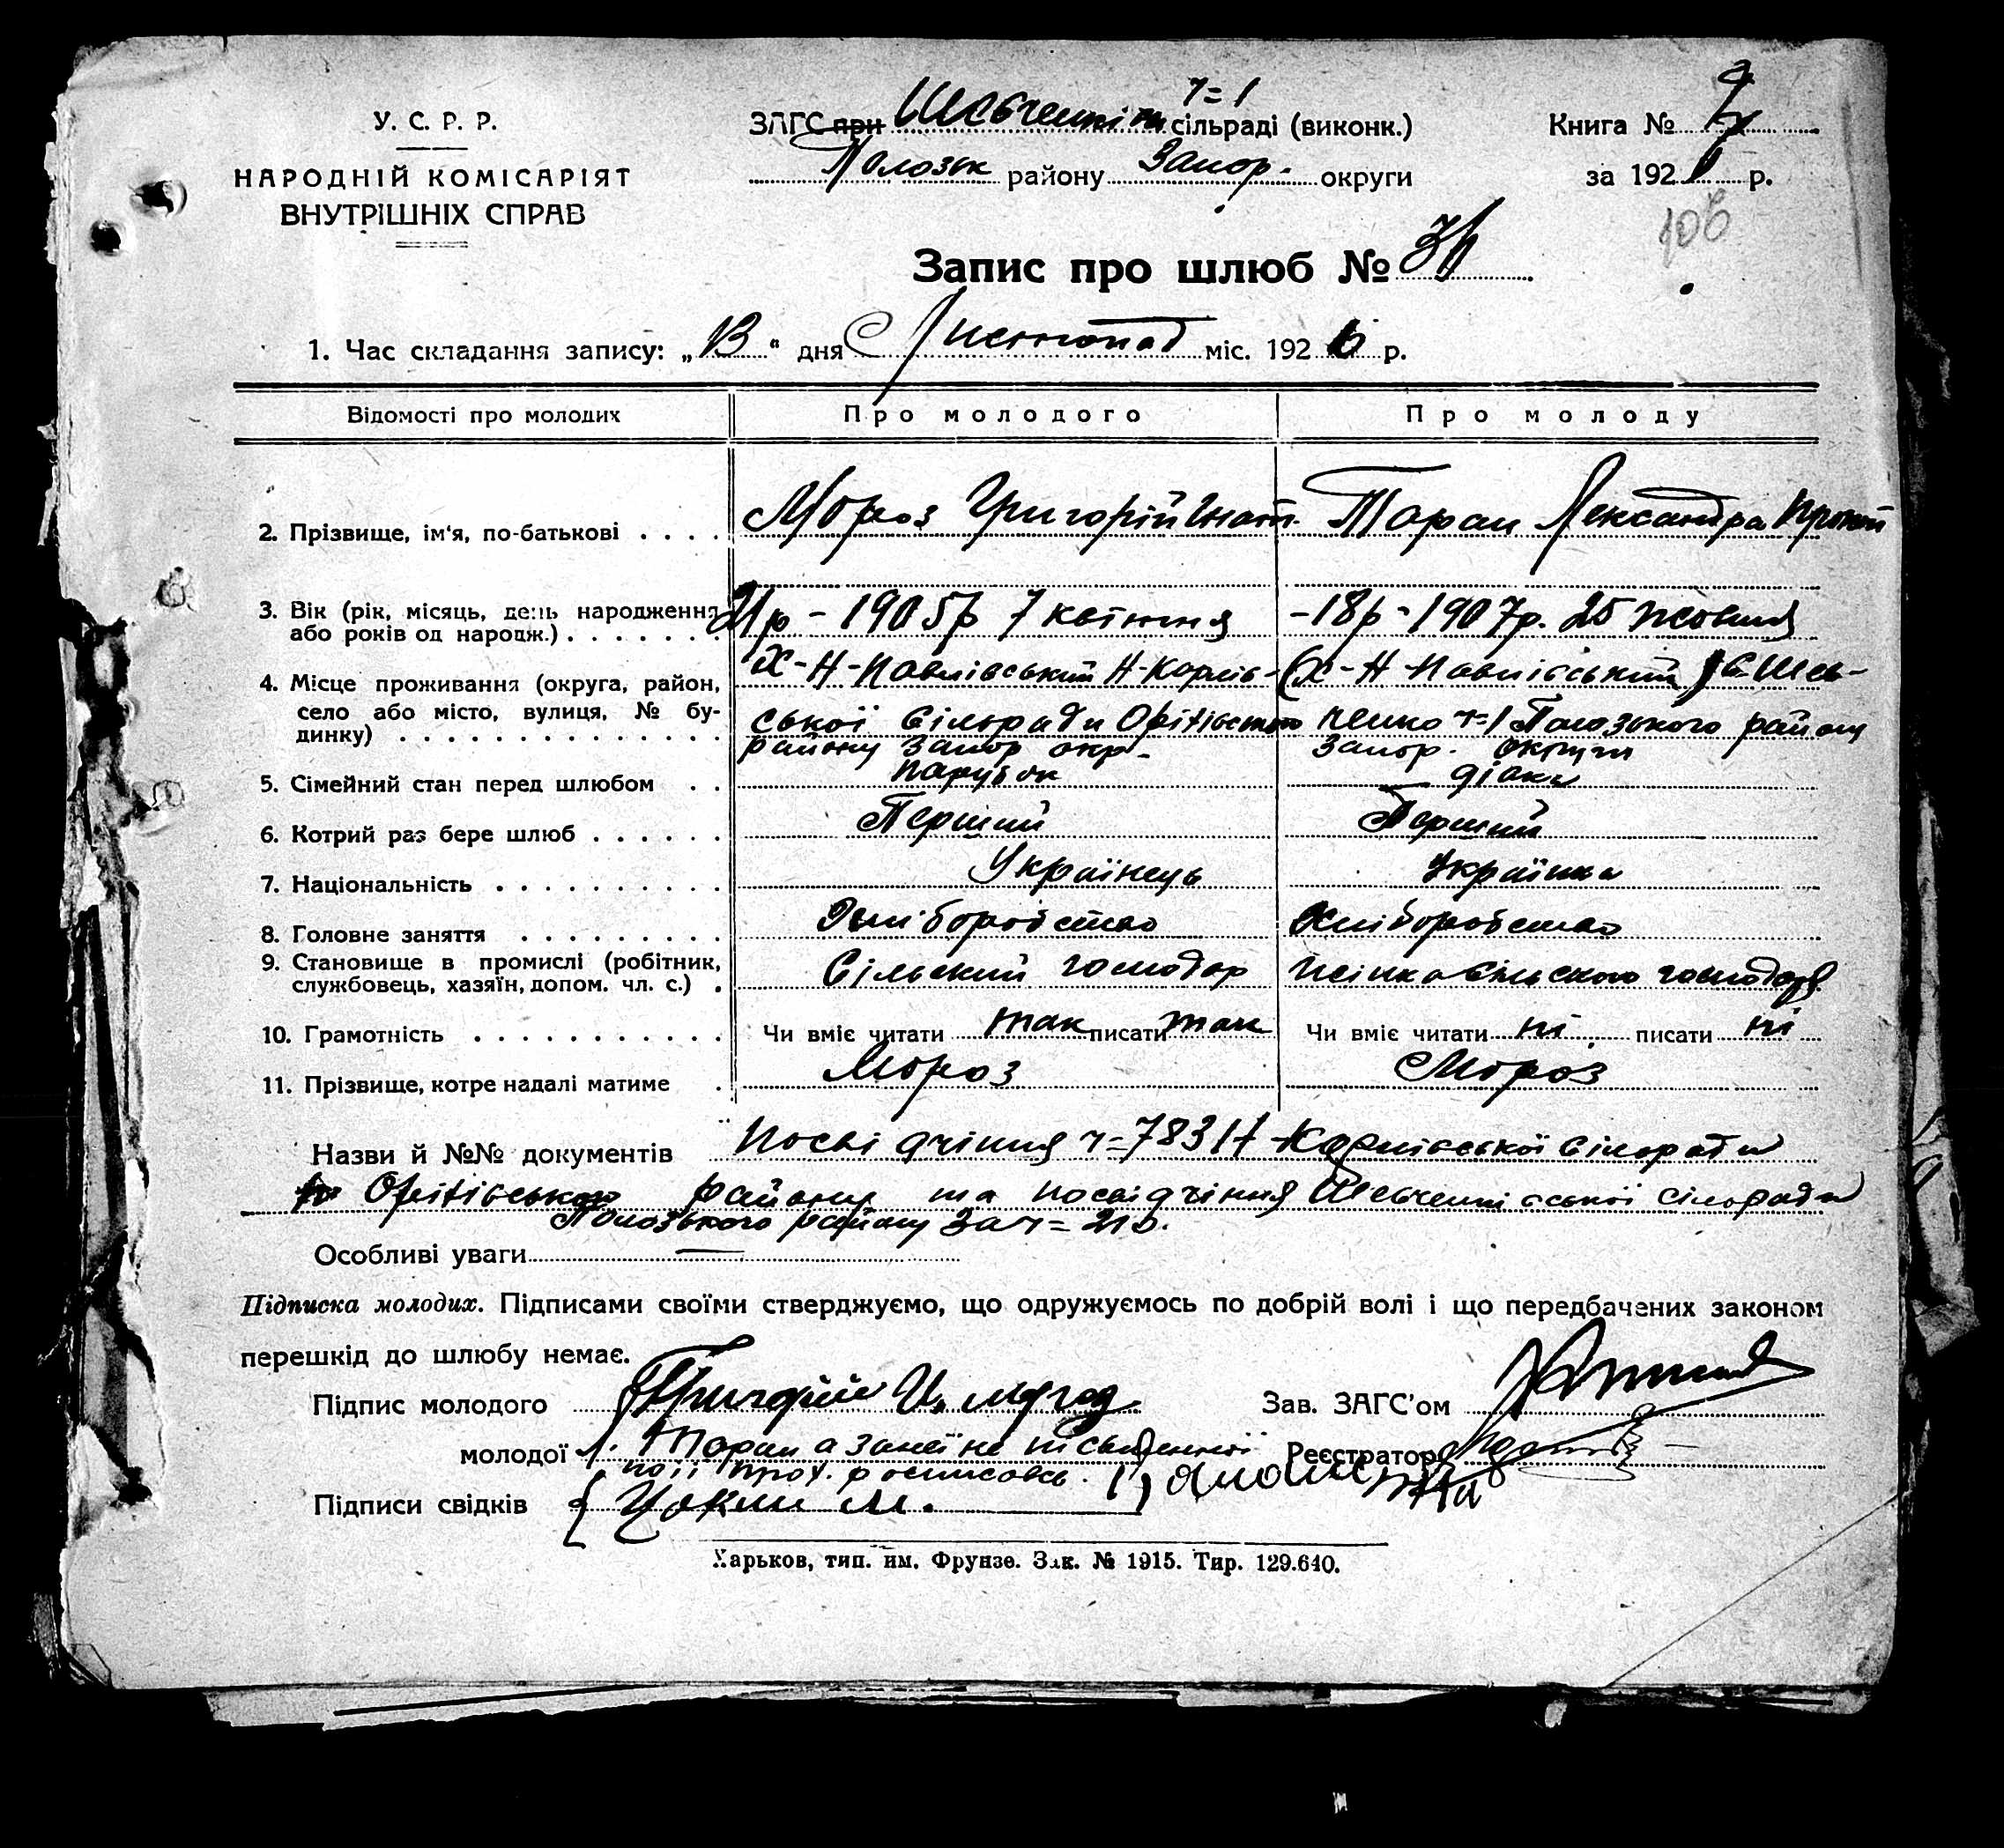 У. С. Р. Р.
НАРОДНІЙ КОМІСАРІЯТ
ВНУТРІШНІХ СПРАВ
ч=1
ЗАГС при Шевченків сільраді (виконк.)
Полозьк району Запор. округи
Книга №
за 1926 р.
106
Запис про шлюб №
1. Час складання запису: „13“ дня Листопад міс. 1926 р.
Відомості про молодих Про молодого Про молоду
2. Прізвище, ім'я, по-батькові Мороз Григорій Гнат. Таран Лександра Прокоп
3. Вік (рік, місяць, день народження або років од народж.) 21р – 1905р 7 квітння – 18р - 1907р. 25 жовтня
4. Місце проживання (округа, район, село або місто, вулиця, № будинку)
Х-Н-Павлівський Н-Карлів-
ської сільради Оріхівського
району Запор окр-
(х-Н-Павлівський) с. Шев-
ченко ч=1 Полозького району
Запор. округи
5. Сімейний стан перед шлюбом парубок дівка
6. Котрий раз бере шлюб Перший Перший
7. Національність Українець Українка
8. Головне заняття Хліборобство Хліборобство
9. Становище в промислі (робітник, службовець, хазяїн, допом. чл. с.) Сільский господар жінка сільского господаря
10. Грамотність Чи вміє читати так писати так Чи вміє читати ні писати ні
11. Прізвище, котре надалі матиме Мороз Мороз
Назви й №№ документів посвідчіння ч=783 Н-Карлівської сільради
Оріхівського району та посвідчіння Шевченківської сільради
Полозького району за ч= 210.
Особливі уваги —
Підписка молодих. Підписами своїми стверджуємо, що одружуємось по добрій волі і що передбачених законом
перешкід до шлюбу немає.
Підпис молодого Григорій И. Мороз Зав. ЗАГС'ом
молодої Л. Таран а за неї не письменної Реєстратор
по її прох. росписавсь.
Підписи свідків
Харьков, тип. им. Фрунзе. Зак. № 1915. Тир. 129.640.